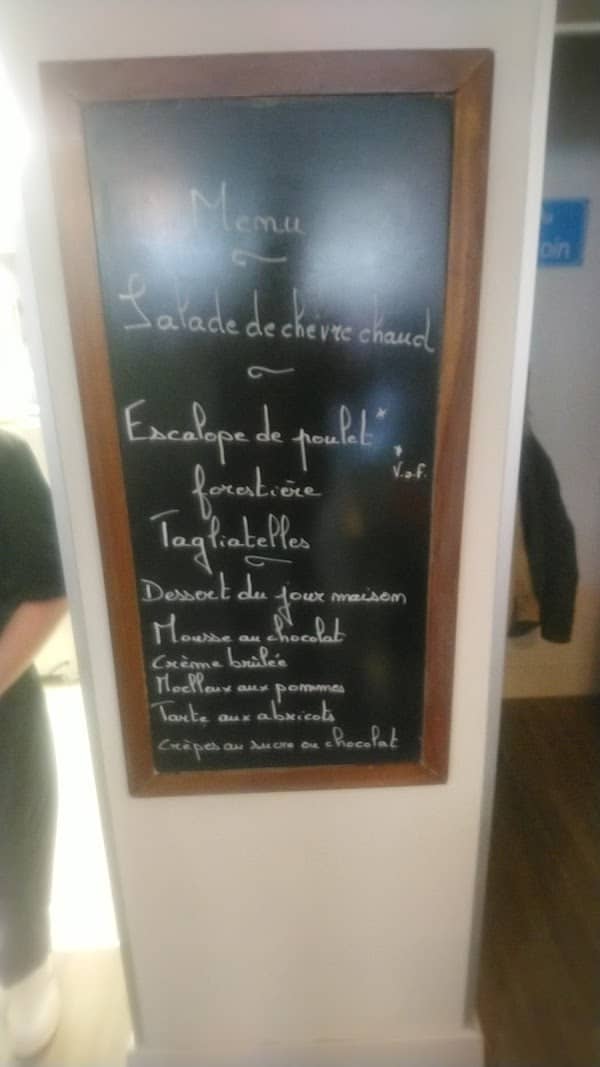 Menu
Salade de chèvre chaud
Escalope de poulet*
* V.o.F.
forestière
Tagliatelles
Dessert du jour maison
Mousse au chocolat
Crème brûlée
Moelleux aux pommes
Tarte aux abricots
Crêpes au sucre ou chocolat